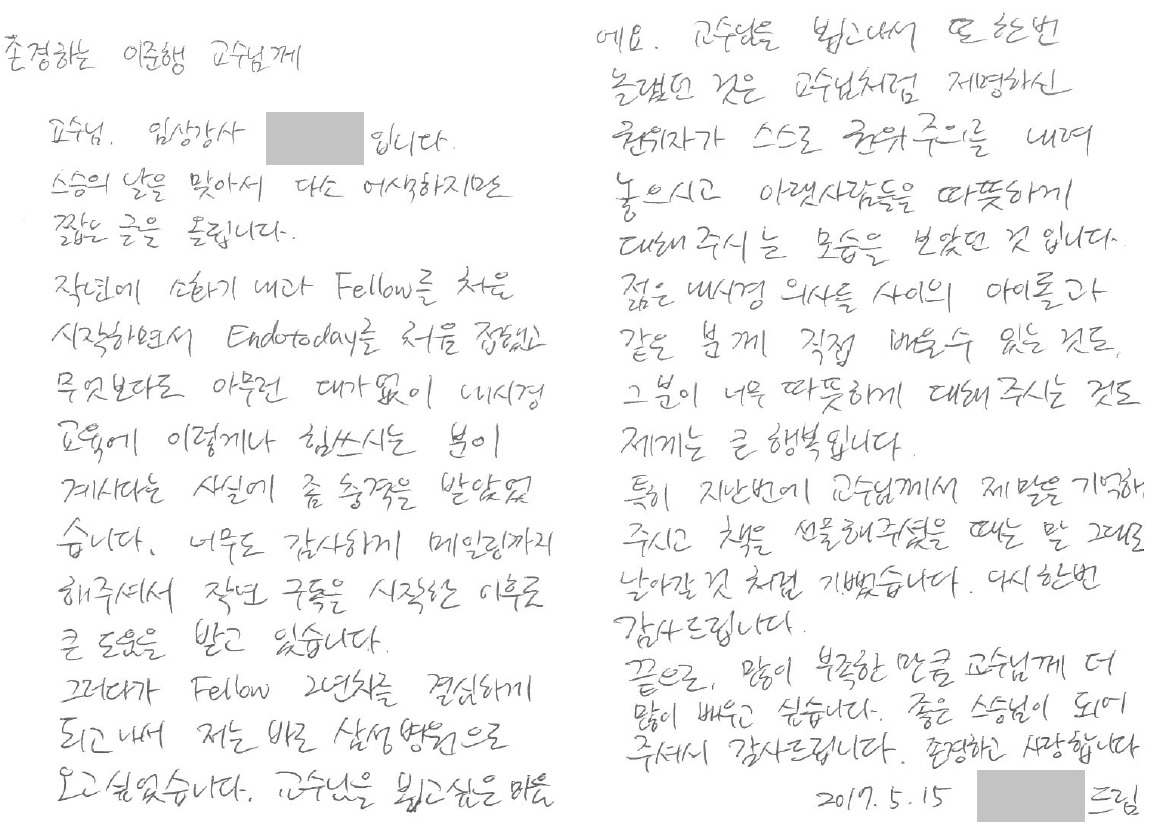 존경하는 이준행 교수님께
교수님. 임상강사 입니다.
스승의 날을 맞아서 다소 어색하지만
짧은 글을 올립니다.
작년에 소화기 내과 Fellow를 처음
시작하면서 Endotoday를 처음 접했고
무엇보다도 아무런 대가없이 내시경
교육에 이렇게나 힘쓰시는 분이
계시다는 사실에 좀 충격을 받았었
습니다. 너무도 감사하게 메일링까지
해주셔서 작년 구독을 시작한 이후로
큰 도움을 받고 있습니다.
그러다가 Fellow 2년차를 결심하게
되고나서 저는 바로 삼성병원으로
오고싶었습니다. 교수님을 뵙고싶은 마음
에요. 교수님을 뵙고나서 또 한번
놀랬던 것은 교수님처럼 저명하신
권위자가 스스로 권위주의를 내려
놓으시고 아랫사람들을 따뜻하게
대해주시는 모습을 보았던 것입니다.
젊은 내시경 의사들 사이의 아이돌과
같은 분께 직접 배울수 있는 것도,
그분이 너무 따뜻하게 대해주시는 것도
제게는 큰 행복입니다.
특히 지난번에 교수님께서 제말을 기억해
주시고 책을 선물해주셨을 때는 말 그대로
날아갈것 처럼 기뻤습니다. 다시한번
감사드립니다.
끝으로, 많이 부족한 만큼 교수님께 더
많이 배우고 싶습니다. 좋은 스승님이 되어
주셔서 감사드립니다. 존경하고 사랑합니다
2017. 5. 15 드림